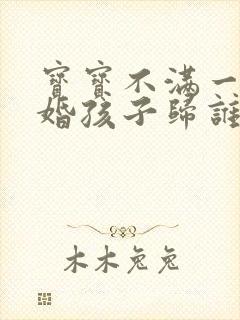 寶寶不滿一
婚孩子歸誰
木木兔兔